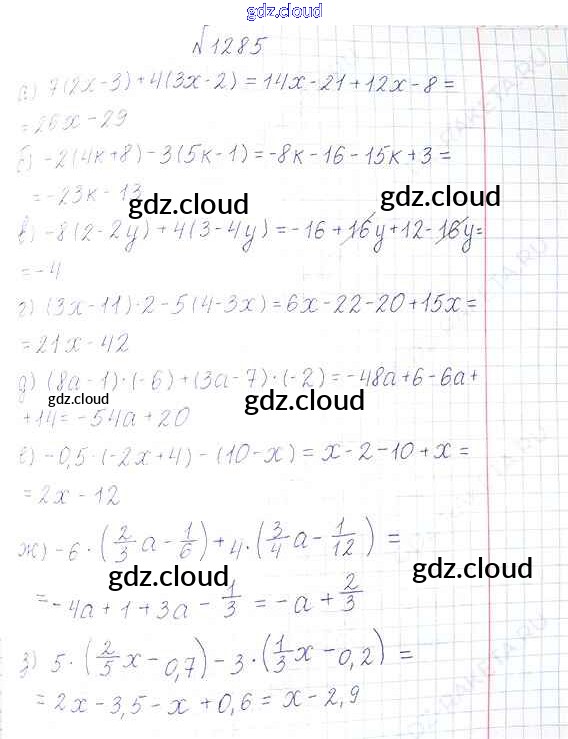 gdz.cloud
№1285
а) 7(2x-3)+4(3x-2)=14x-21+12x-8=
=26x-29
б) -2(4к+8)-3(5к-1)=-8к-16-15к+3=
=-23к-13
gdz.cloud gdz.cloud
в) -8(2-2y)+4(3-4y)=-16+16y+12-16y=
=-4
г) (3x-11)·2-5(4-3x)=6x-22-20+15x=
=21x-42
д) (8a-1)·(-6)+(3a-7)·(-2)=-48a+6-6a+
gdz.cloud gdz.cloud
+14=-54a+20
е) -0,5·(-2x+4)-(10-x)=x-2-10+x=
=2x-12
ж) -6·(2/3 a-1/6)+4·(3/4 a-1/12)=
gdz.cloud gdz.cloud
=-4a+1+3a-1/3=-a+2/3
з) 5·(2/5 x-0,7)-3·(1/3 x-0,2)=
=2x-3,5-x+0,6=x-2,9